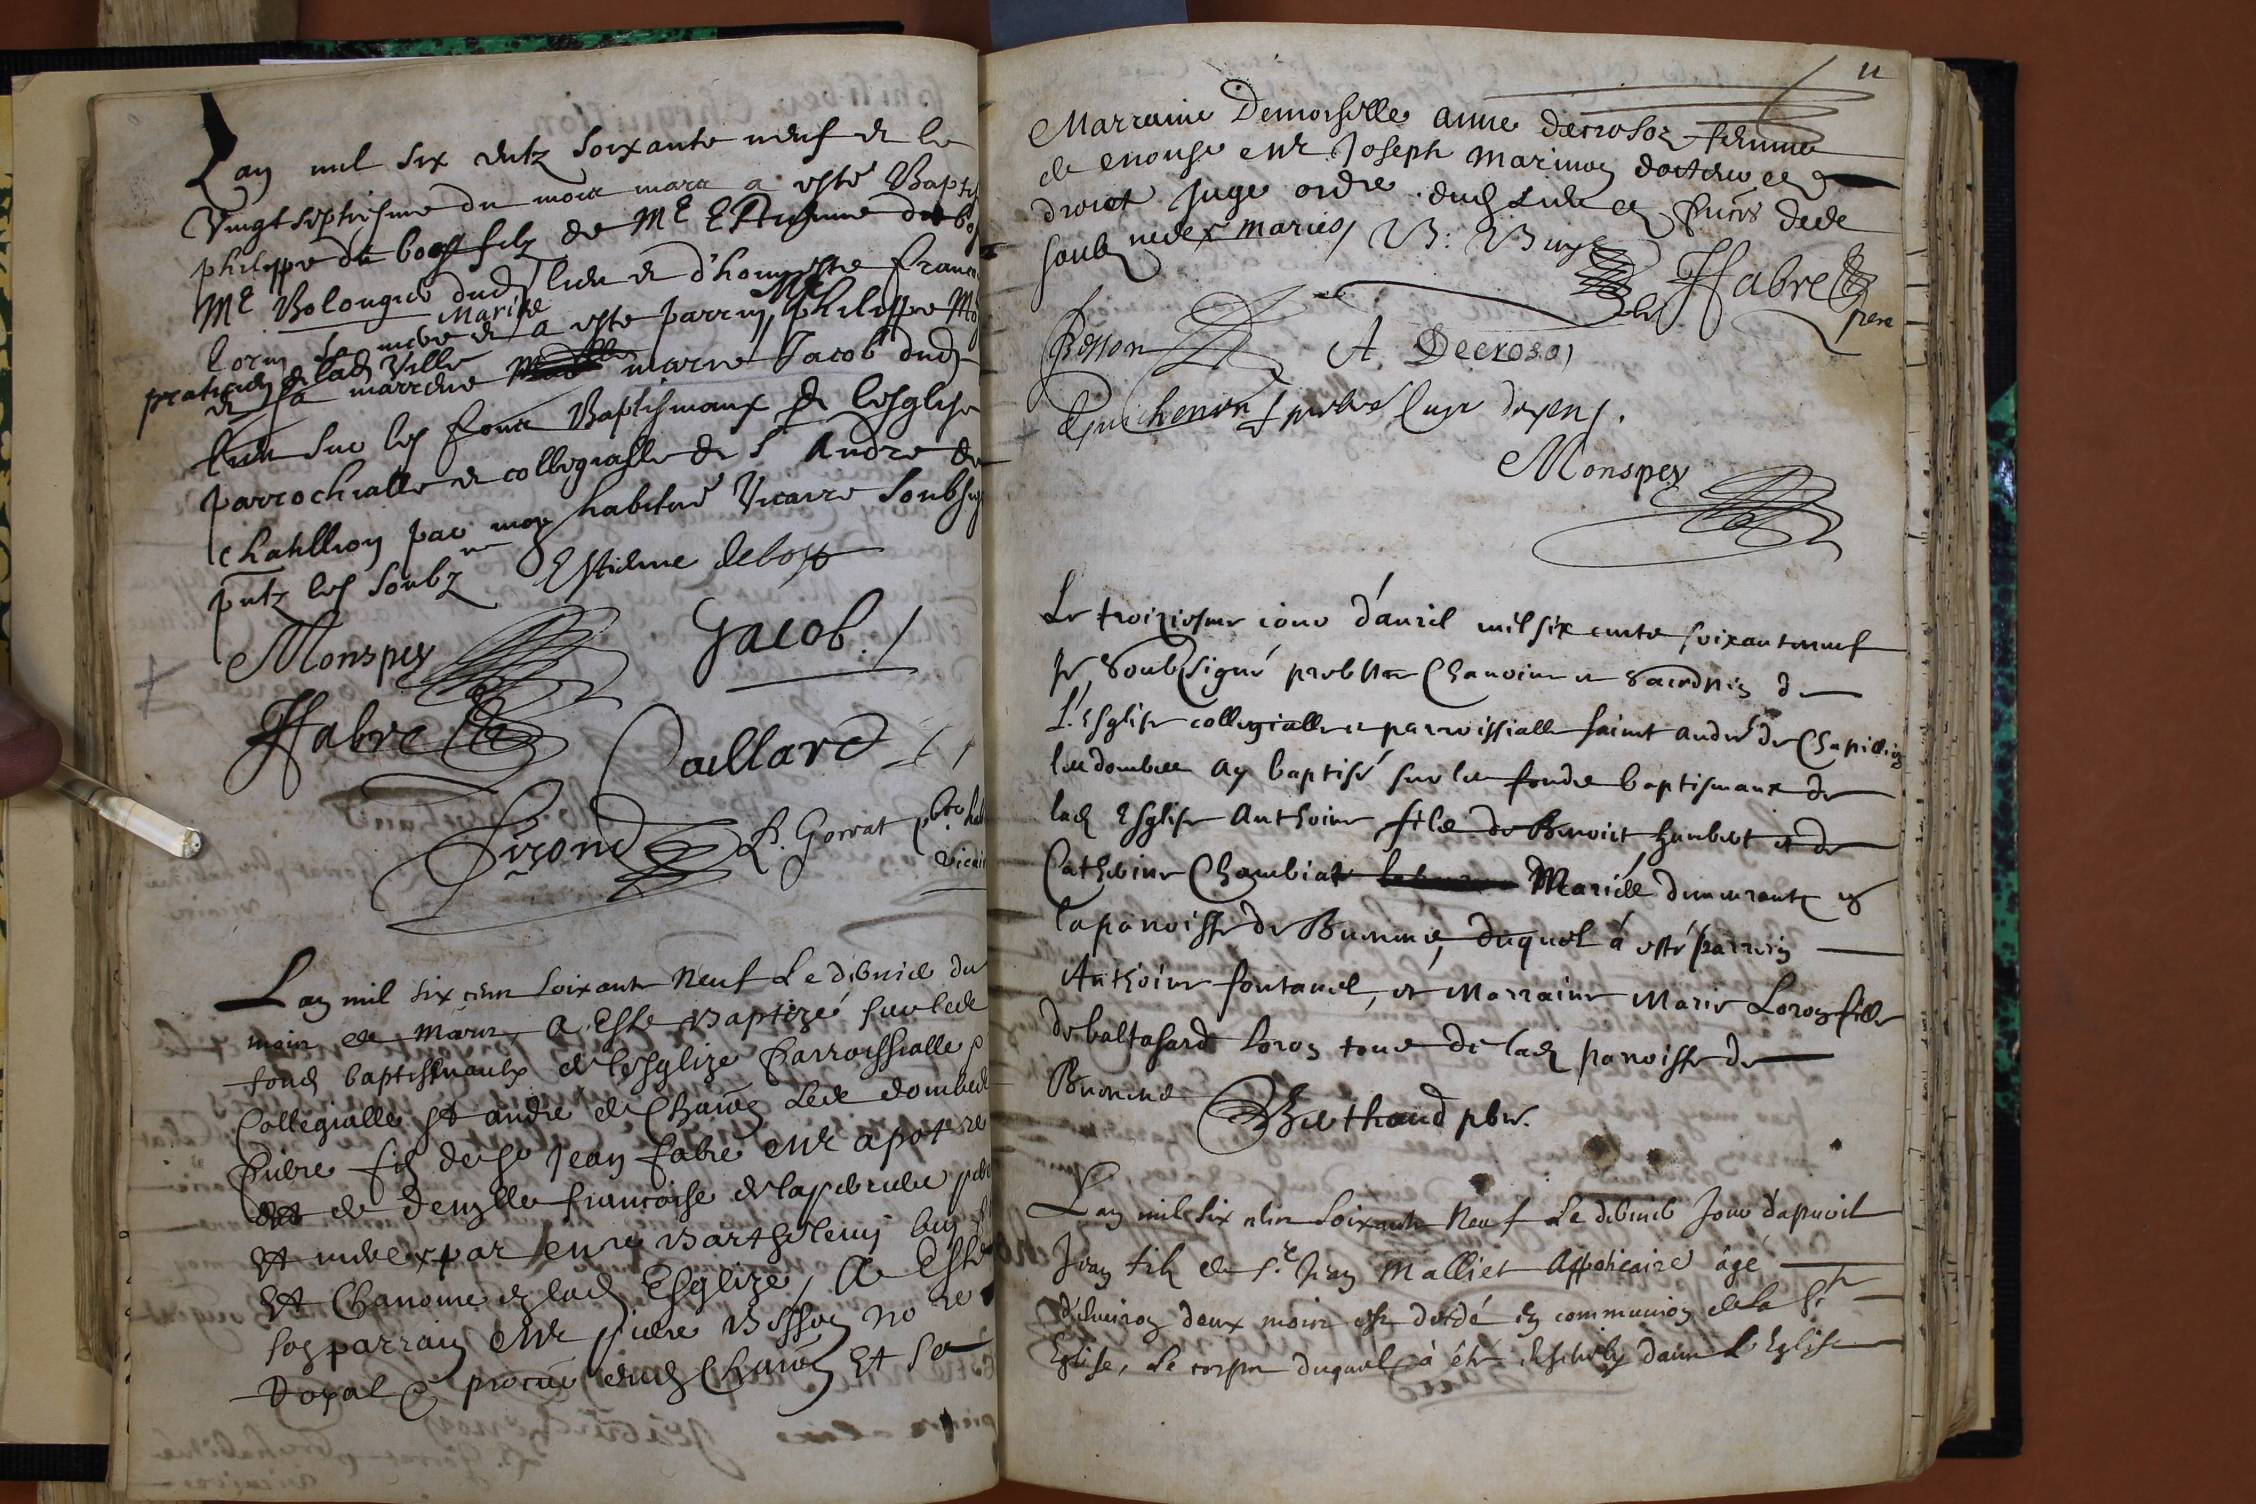 Lan mil six centz soixante neuf et le
vingt septiesme du mois mars a esté Bapti
philippe de bost filz de Mr Estienne de bo
Me Bolongier dud lieu et d'honneste franc
lorin sa mere Mariés a esté parrin Mr philippe Mo
praticien de lad Ville
et sa marrene marie Jacob dud
lieu sur les fonts Baptismaux de lesglise
parrochialle et collegialle de St André de
Chatillion par moy habitué Vicaire soubsig
pntz les soubz nes Estiene debost
Monspey
Jacob
ffabre
Caillard
Girond
P. Gorrat pbre hab
vicair
Lan mil six cens soixante Neuf Le dernier du
mois de mars, A Esté Baptizé sur les
fonds baptismaulx de lesglize Parroissialle
Collegialle st andré de Chaton Les dombes
Pierre fils de sr Jean fabre mr apotre
Et de demlle francoise de laperriere
Et nedex par mre Barthelemy buy
Et Chanoine en lad Esglize, A Esté
son parrain Mr pierre Besson no re
Royal & procur dud Chaton Et sa
11
Marraine Demoiselle anne decrosoz femme
de enouse Mr Joseph Marinon docteur es
droict Juge ordre dud Lieu en presence des
soubz nedex mariés B: Buy
ffabre
pere
Besson
A Decroso
Guichenon prebtre Cure doyen.
Monspey
Le troiziesme iour d'auril mil six cents soixanteneuf
Je Soubsigné prebstre Chanoine et Sacristin de
L'Esglise collegialle et parroissialle saint andré de Chastillion
les dombes ay baptisé sur les fonds baptismaux de
lad Esglise Anthoine filz de Benoict humbert et de
Catherine Chambiat Mariés demeurants en
la paroisse de Buenens, duquel à esté parrein
Anthoine fontanel, et Marraine Marie Loron fille
de baltasard Loron tous de lad paroisse de
Buenens Berthaud pbre.
Lan mil six cens soixante Neuf Le dernier Jour d'apuril
Jean filz de sr Jean Malliet Appoticaire âgé
d'enuiron deux mois est decedé en communion de la ste
Eglise, Le corps duquel à été enseuely dans L'Eglise